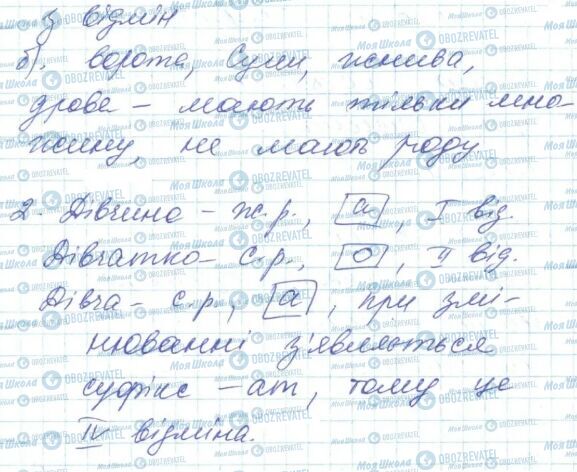 з відмін
б). ворота, Суми, жнива,
дрова – мають тільки мно-
жину, не мають роду
2. Дівчина – ж.р., а, I від.
Дівчатко – с.р., о, II від.
Дівча – с.р., а, при змі-
нюванні з'являється
суфікс – ат, тому це
IV відміна.